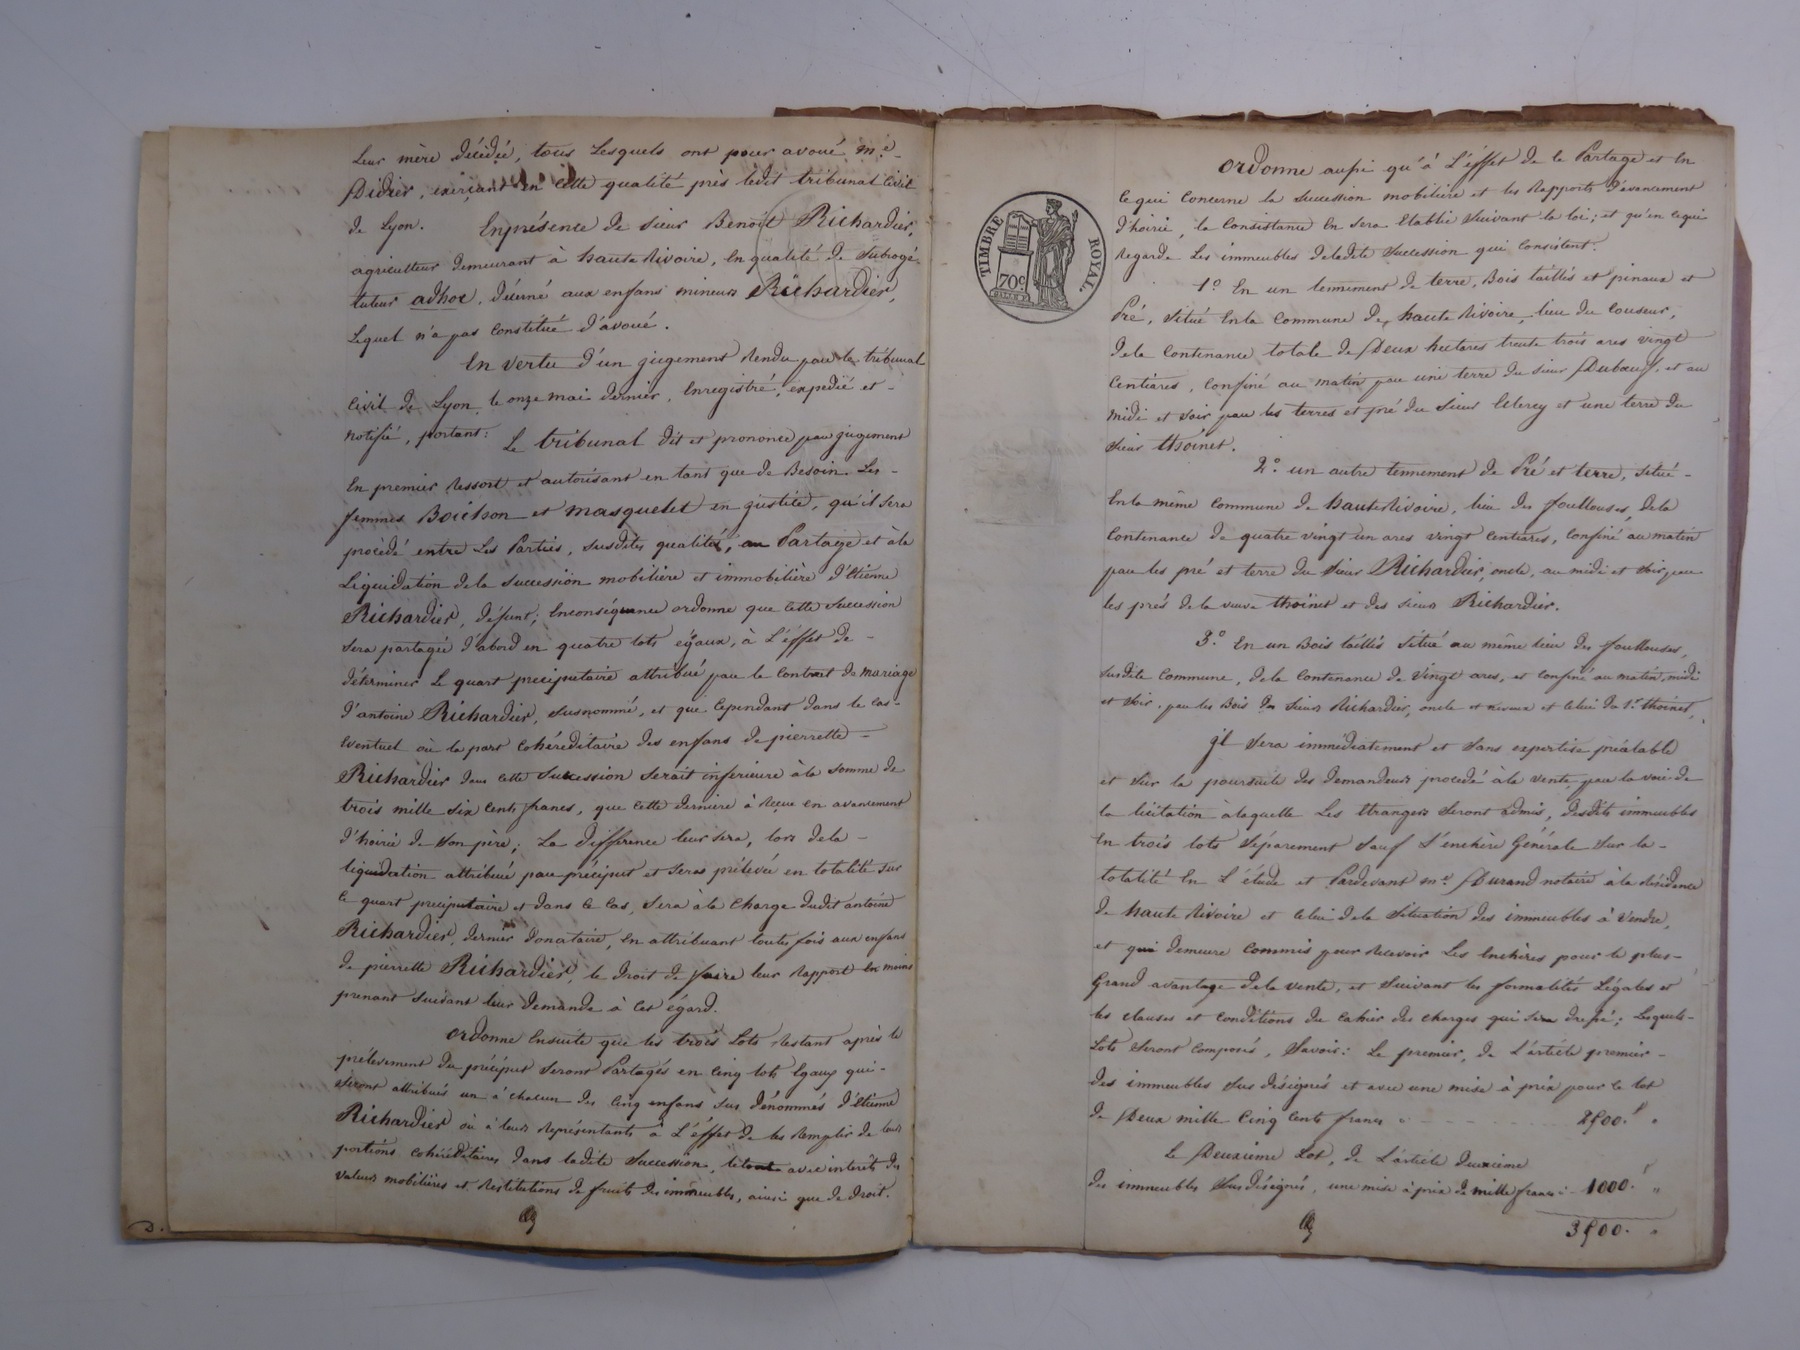 Leur mère décédée, tous Lesquels ont pour avoué, me.
Didier, exerçant en cette qualité près ledit tribunal Civil
de Lyon. Enprésence de sieur Benoît Richardier,
agriculteur demeurant à haute Rivoire, en qualité de Subrogé-
tuteur adhoc, décerné aux enfans mineurs Richardier,
Lequel n'a pas Constitué d'avoué.
En vertu d'un jugement Rendu par le tribunal
Civil de Lyon, le onze mai dernier, Enregistré, expedié et -
notifié, portant: Le tribunal dit et prononce par jugement
En premier Ressort et autorisant en tant que de Besoin. Les -
femmes Boichon et masquelet en justice, qu'il Sera
procédé entre Les Parties, Susdites qualités, au Partage et àla
Liquidation dela Succession mobilière et immobilière d'Etienne
Richardier, défunt; Enconséquence ordonne que cette Succession
Sera partagée d'abord en quatre lots égaux, à L'éffet de -
déterminer Le quart preciputaire attribué par le Contrat de mariage
d'antoine Richardier, Susnommé, et que Cependant dans le cas -
Eventuel où la part Cohéréditaire des enfans de pierrette -
Richardier dans cette Succession Serait inferieure àla Somme de
trois mille Six Cents francs, que cette derniere à Reçue en avancement
d'hoirie de Son père; La différence leur Sera, lors dela -
liquidation attribuée par préciput et Sera prélevée en totalité Sur
Ce quart preciputaire et dans Ce Cas, Sera àla Charge dudit antoine
Richardier, dernier donataire, En attribuant toute fois aux enfans
de pierrette Richardier, le droit de faire leur Rapport En moins
prenant Suivant leur demande à Cet égard.
Ordonne Ensuite que les trois Lots Restant après le
prélevement du préciput Seront Partagés en Cinq lots Egaux qui -
Seront attribués un à chacun des Cinq enfans Sus dénommés d'Etienne
Richardier ou à leurs Représentants à L'éffet de les Remplir de leurs
portions Cohéréditaires dans ladite Succession, le tout avec interêts des
Valeurs mobilières et Restitutions de fruits des immeubles, ainsi que de droit.
D.
TIMBRE ROYAL.
70c
Ordonne aussi qu'à L'éffet de le Partage et En
Ce qui Concerne la Succession mobilière et les Rapports d'avancement
d'hoirie, la Consistance En Sera Etablie Suivant la loi; et qu'en cequi
Regarde Les immeubles deladite Succession qui Consistent:
1º En un tennement de terre, Bois taillés et pinaux et
Pré, Situé Enla Commune de haute Rivoire, lieu du Couseur,
dela Contenance totale de Deux hectares trente trois ares vingt
Centiares, Confiné au matin par une terre du Sieur Duboeuf, et au
midi et Soir par les terres et pré du Sieur Clercy et une terre du
Sieur thoinet.
2º un autre tennement de Pré et terre, Situé -
Enla même Commune de haute Rivoire, lieu des foullouses, dela
Contenance de quatre vingt un ares vingt Centiares, Confiné au matin
par les pré et terre du Sieur Richardier, oncle, au midi et Soir par
les prés de la veuve thoinet et des Sieurs Richardier.
3º En un Bois taillés Situé au même lieu des foullouses,
Susdite Commune, dela Contenance de Vingt ares, et Confiné au matin, midi
et Soir, par les Bois des Sieurs Richardier, oncle et neveux et Celui du Sr. thoinet,
il Sera immédiatement et Sans expertise préalable
et Sur la poursuite des demandeurs procedé àla Vente, par la voie de
la licitation àlaquelle Les Etrangers Seront admis, desdits immeubles
En trois lots Séparement Sauf L'enchère Générale Sur la -
totalité En L'étude et Pardevant me. Durand notaire àla Résidence
de haute Rivoire et Celui dela Situation des immeubles à Vendre,
et qui demeure Commis pour Recevoir Les Enchères pour le plus -
Grand avantage dela vente, et Suivant les formalités Légales et
les clauses et Conditions du Cahier des charges qui Sera dressé; Lesquels -
Lots Seront Composés, Savoir: Le premier, de L'article premier -
des immeubles Sus désignés et avec une mise à prix pour ce lot
de Deux mille Cinq Cents francs ci - - - 2500.f "
Le Deuxième Lot, de L'article deuxième
des immeubles Susdésignés, une mise à prix de mille francs ci - 1000.f "
3500. "